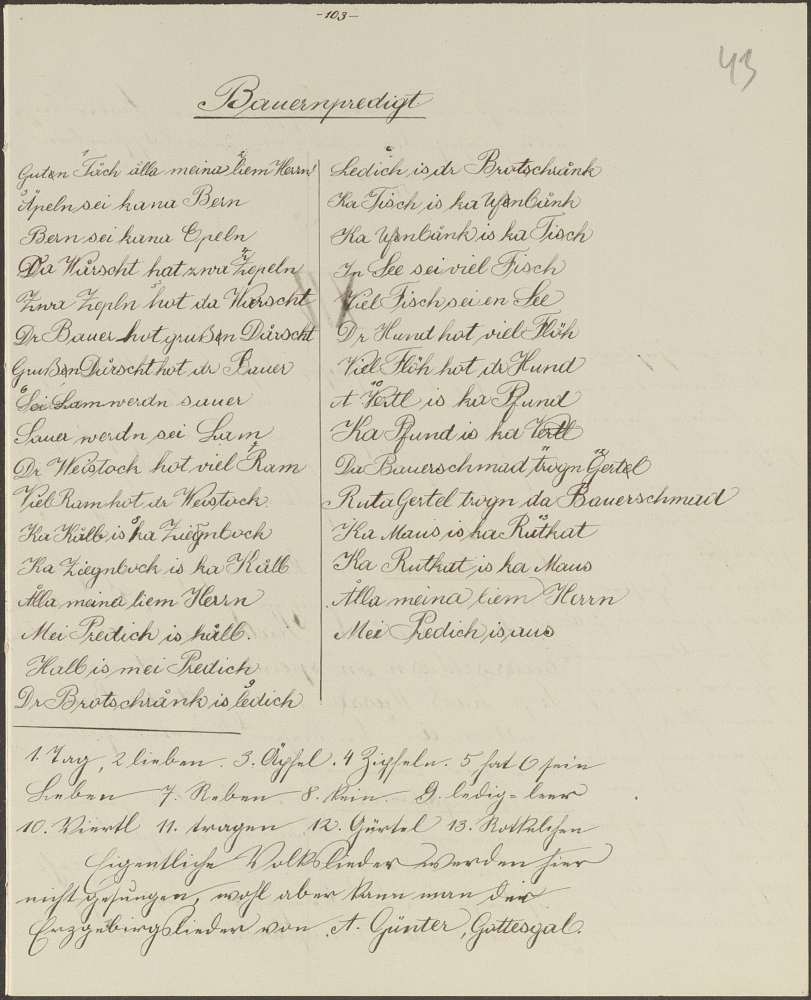 -103-
43
Bauernpredigt
Guten Tåch ålla meina liem Herrn!
Äpeln sei kana Bern
Bern sei kana Epeln
Da Wårscht hat zwa Zepeln
Zwa Zepln hot da Warscht
Dr Bauer hot grußen Dårscht
Grußen Dårscht hot dr Bauer
Sei Lam werdn sauer
Sauer werdn sei Lam
Dr Weistock hot viel Ram
Viel Ram hot dr Weistock
Ka Kålb is ka Ziegnbock
Ka Ziegnbock is ka Kålb
Ålla meina liem Herrn
Mei Predich is hålb.
Halb is mei Predich
Dr Brotschränk is ledich
Ledich is dr Brotschränk
Ka Tisch is ka Ufnbänk
Ka Ufnbänk is ka Tisch
In See sei viel Fisch
Viel Fisch sei en See
Dr Hund hot viel Flöh
Viel Flöh hot dr Hund
A Vertl is ka Pfund
Ka Pfund is ka Vertl
Da Bauerschmad trogn Gertel
Ruta Gertel trogn da Bauerschmad
Ka Maus is ka Rutkat
Ka Rutkat is ka Maus
Ålla meina liem Herrn
Mei Predich is aus
1. Tag, 2 lieben. 3. Äpfel. 4 Zipfeln. 5 hat 6 sein
Leben 7. Reben 8. kein 9. ledig = leer
10. Viertl 11. tragen 12. Gürtel 13. Rotkelchen
Eigentliche Volkslieder werden hier
nicht gesungen, wohl aber kann man die
Erzgebirgslieder von A. Günter, Gottesgab.